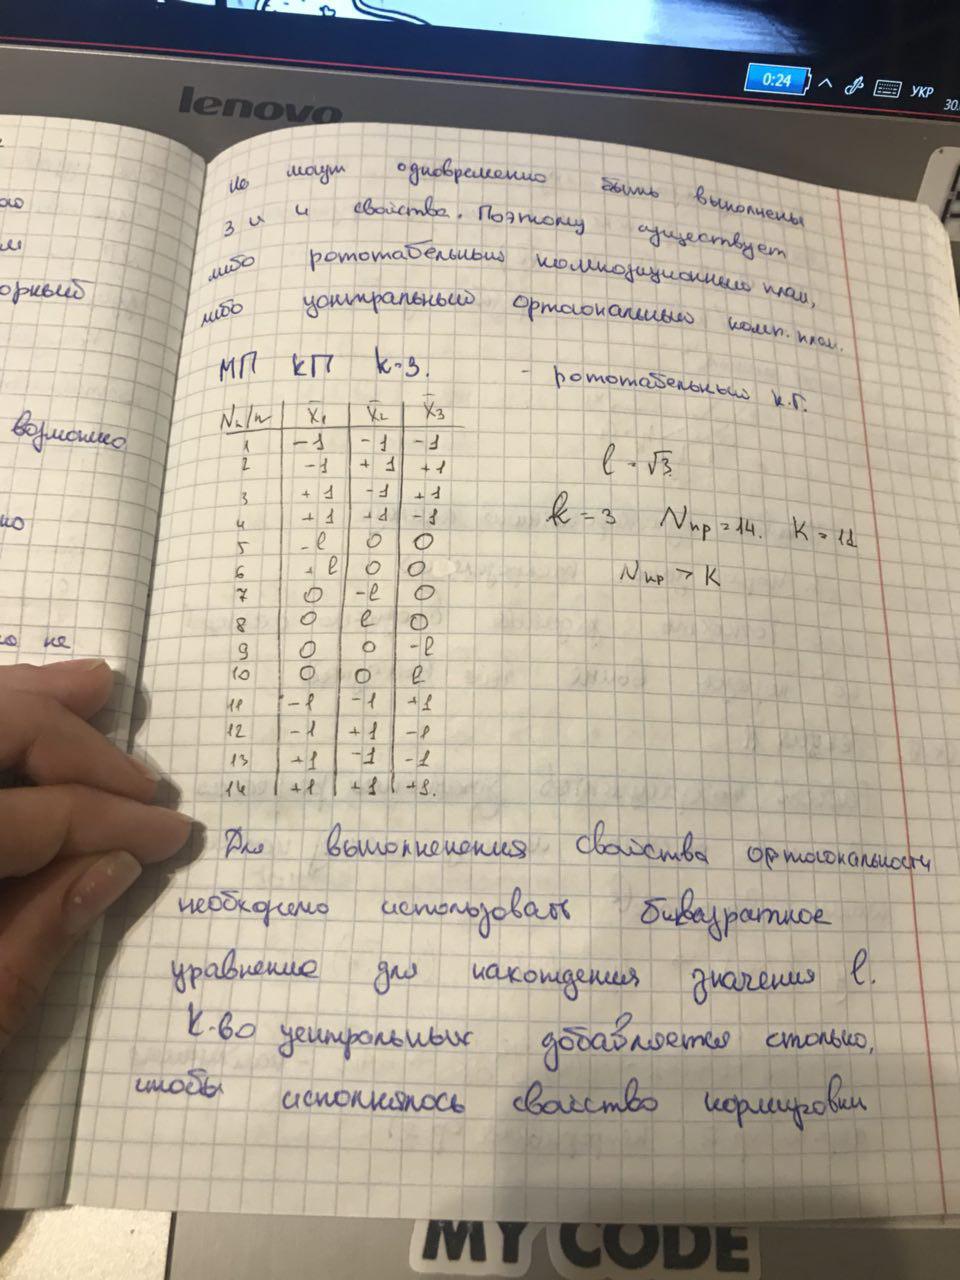 lenovo
0:24
УКР
30.
не могут одновременно быть выполнены
3 и 4 свойства. Поэтому существует
либо рототабельный композиционный план,
либо центральный ортогональный комп. план.
МП КП k=3. - рототабельный к.п.
N п/п x̄₁ x̄₂ x̄₃
1 -1 -1 -1
2 -1 +1 +1
3 +1 -1 +1
4 +1 +1 -1
5 -l 0 0
6 +l 0 0
7 0 -l 0
8 0 l 0
9 0 0 -l
10 0 0 l
11 -1 -1 +1
12 -1 +1 -1
13 +1 -1 -1
14 +1 +1 +1.
l = √3.
k = 3 Nпр = 14. K = 11
Nпр > K
Для выполненения свойства ортогональности
необходимо использовать биквадратное
уравнение для нахождения значения l.
К-во центральных добавляется столько,
чтобы исполнялось свойство нормировки
орный
возможно
но не
MY CODE